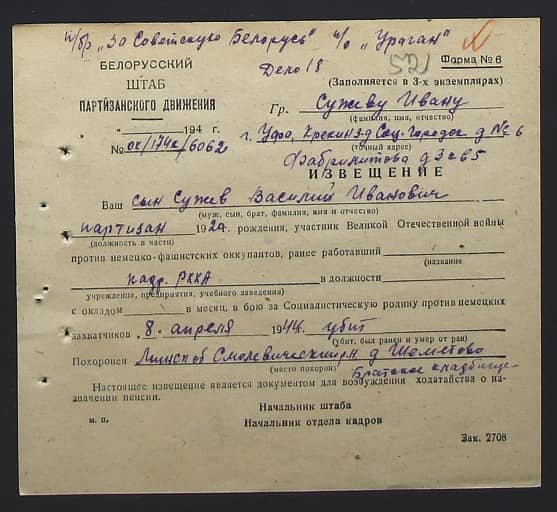 п/бр "За Советскую Белорусь" п/о "Ураган"
Дело 18
521
Форма № 6
БЕЛОРУССКИЙ
ШТАБ
ПАРТИЗАНСКОГО ДВИЖЕНИЯ
(Заполняется в 3-х экземплярах)
Гр. Сужеву Ивану
(фамилия, имя, отчество)
"___" ______ 194 г.
№ ок/174к/6062
г. Уфа, Крекинзд Соц. Городок д № 6
(точный адрес)
д 3 кв 5
ИЗВЕЩЕНИЕ
Ваш сын Сужев Василий Иванович
(муж, сын, брат, фамилия, имя и отчество)
партизан 192 рождения, участник Великой Отечественной войны
(должность в части)
против немецко-фашистских оккупантов, ранее работавший
(название
кадр. РККА в должности
учреждения, предприятия, учебного заведения)
с окладом в месяц, в бою за Социалистическую родину против немецких
захватчиков 8 апреля 1944г. убит
(убит, был ранен и умер от ран)
Похоронен Минской Смолевический рн д Шеметово
(место похорон) Братское кладбище
Настоящее извещение является документом для возбуждения ходатайства о на-
значении пенсии.
Начальник штаба
м. п. Начальник отдела кадров
Зак. 2708